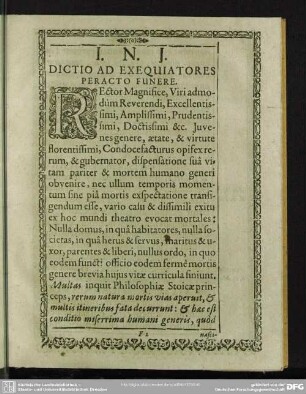 I. N. J.
DICTIO AD EXEQUIATORES
PERACTO FUNERE.
REctor Magnifice, Viri admo-
dùm Reverendi, Excellentis-
simi, Amplissimi, Prudentis-
simi, Doctissimi &c. Juve-
nes genere, ætate, & virtute
florentissimi, Condocefacturus opifex re-
rum, & gubernator, dispensatione suâ vi-
tam pariter & mortem humano generi
obvenire, nec ullum temporis momen-
tum sine piâ mortis exspectatione transi-
gendum esse, vario casu & dissimili exitu
ex hoc mundi theatro evocat mortales:
Nulla domus, in quâ habitatores, nulla so-
cietas, in quâ herus & servus, maritus & u-
xor, parentes & liberi, nullus ordo, in quo
eodem functi officio eodem fermè mortis
genere brevia hujus vitæ curricula finiunt.
Multas inquit Philosophiæ Stoicæ prin-
ceps, rerum natura mortis vias aperuit, &
multis itineribus fata decurrunt: & hæc est
conditio miserrima humani generis, quòd
F 2
nasci-